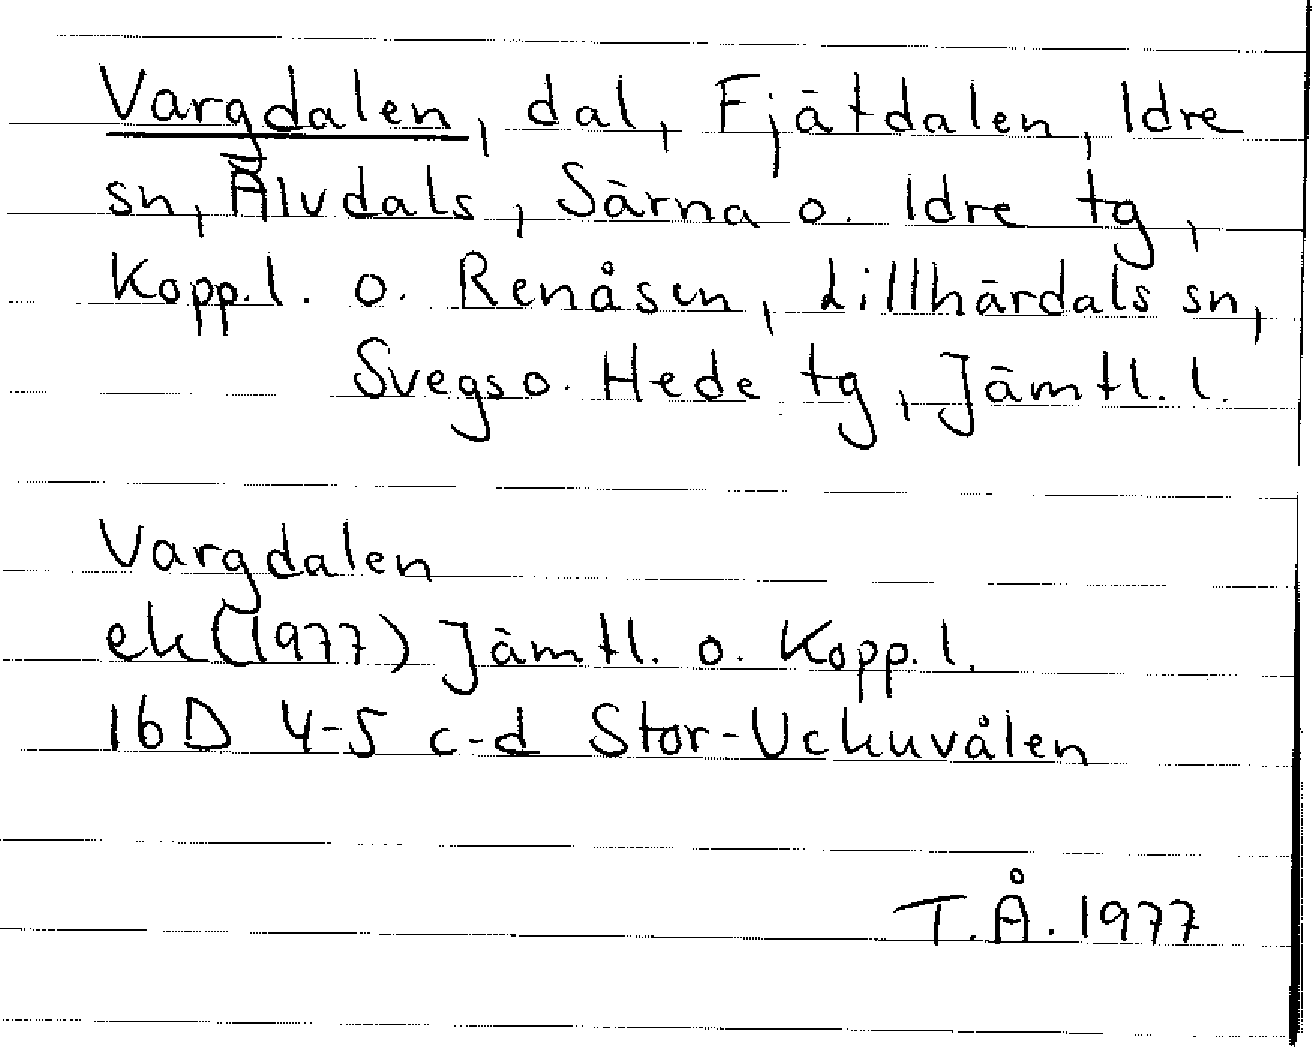 Vargdalen, dal, Fjätdalen, Idre
sn, Älvdals, Särna o. Idre tg,
Kopp.l. o. Renåsen, Lillhärdals sn,
Svegs o. Hede tg, Jämtl. l.
Vargdalen
ek (1977) Jämtl. o. Kopp. l.
16D 4-5 c-d Stor-Uckuvålen
T.Å. 1977